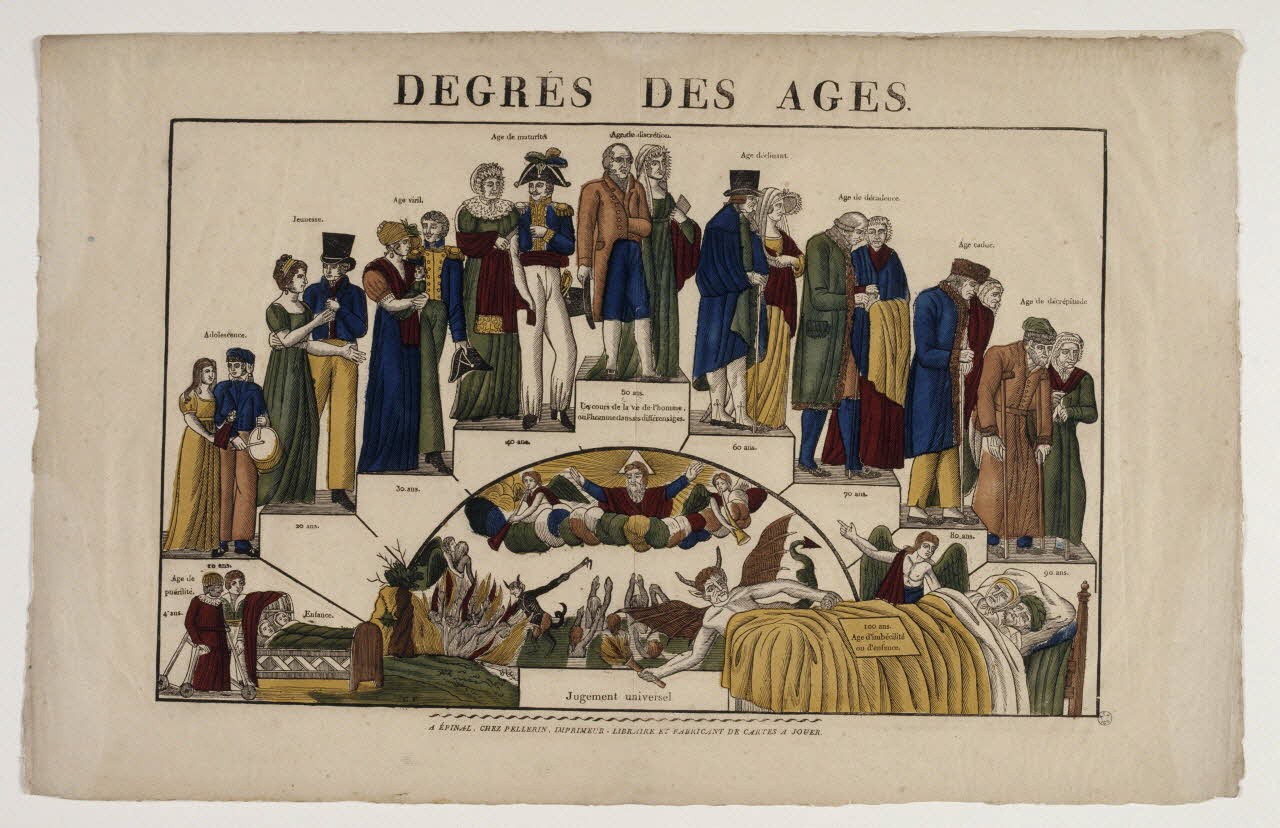 DEGRÉS DES AGES.
Age de maturité
Age de discrétion.
Age déclinant.
Age viril.
Age de décadence.
Jeunesse.
Age caduc.
Age de décrépitude
Adolescence.
50 ans.
Le cours de la vie de l'homme,
ou l'homme dans ses différens âges.
40 ans.
60 ans.
30 ans.
70 ans.
20 ans.
80 ans.
10 ans.
90 ans.
Age de
puérilité.
4 ans.
Enfance.
100 ans.
Age d'imbécilité
ou d'enfance.
Jugement universel
A ÉPINAL, CHEZ PELLERIN, IMPRIMEUR-LIBRAIRE ET FABRICANT DE CARTES A JOUER.